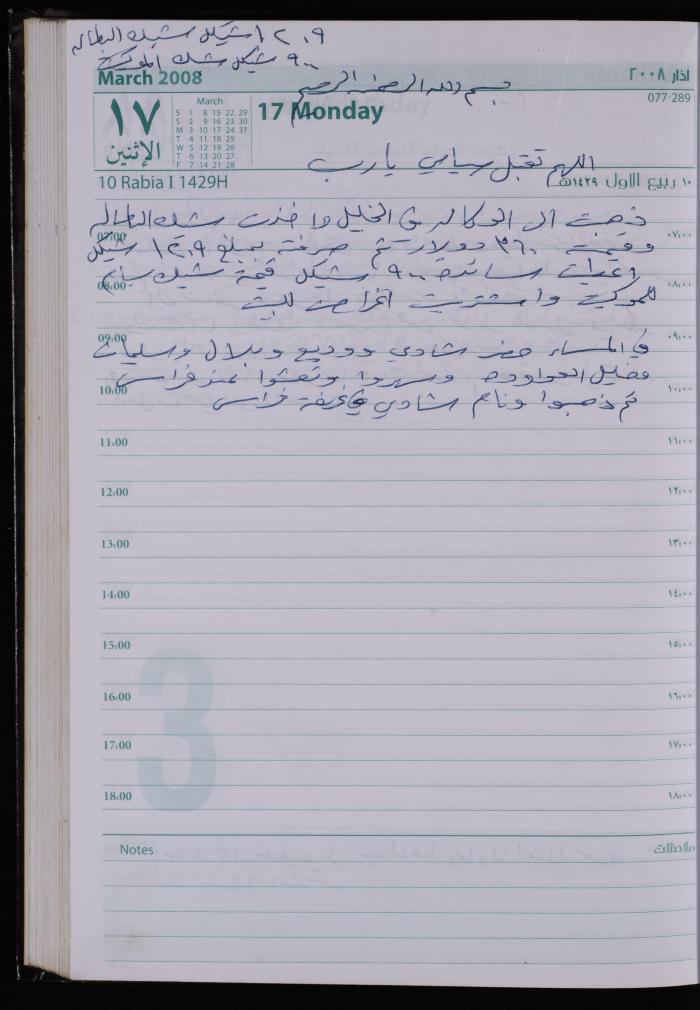 ١٢٠٩ شيكل شيك البطاله
٩٠٠ شيكل شك الموكيت
March 2008
اذار ٢٠٠٨
بسم الله الرحمن الرحيم
077-289
١٧
الإثنين
March
S 1 8 15 22 29
S 2 9 16 23 30
M 3 10 17 24 31
T 4 11 18 25
W 5 12 19 26
T 6 13 20 27
F 7 14 21 28
17 Monday
اللهم تقبل صيامي يا رب
10 Rabia I 1429H
١٠ ربيع الاول ١٤٢٩هـ
ذهبت الى الوكاله في الخليل واخذت شيك البطاله
07:00 ٠٧:٠٠
وقيمته ٣٦٠ دولار تم صرفه بمبلغ ١٢٠٩ شيكل
٩٠٠ شيكل قيمة شيك
08:00 ٠٨:٠٠
للموكيت واشتريت اغراض للبيت
09:00 ٠٩:٠٠
في المساء حضر شادي ووديع وبلال وسليمان
وفضيل العواوده وسهروا وتعشوا عند فراس
10:00 ١٠:٠٠
ثم ذهبوا ونام شادي في غرفة فراس
11:00 ١١:٠٠
12:00 ١٢:٠٠
13:00 ١٣:٠٠
14:00 ١٤:٠٠
15:00 ١٥:٠٠
3
16:00 ١٦:٠٠
17:00 ١٧:٠٠
18:00 ١٨:٠٠
Notes
ملاحظات